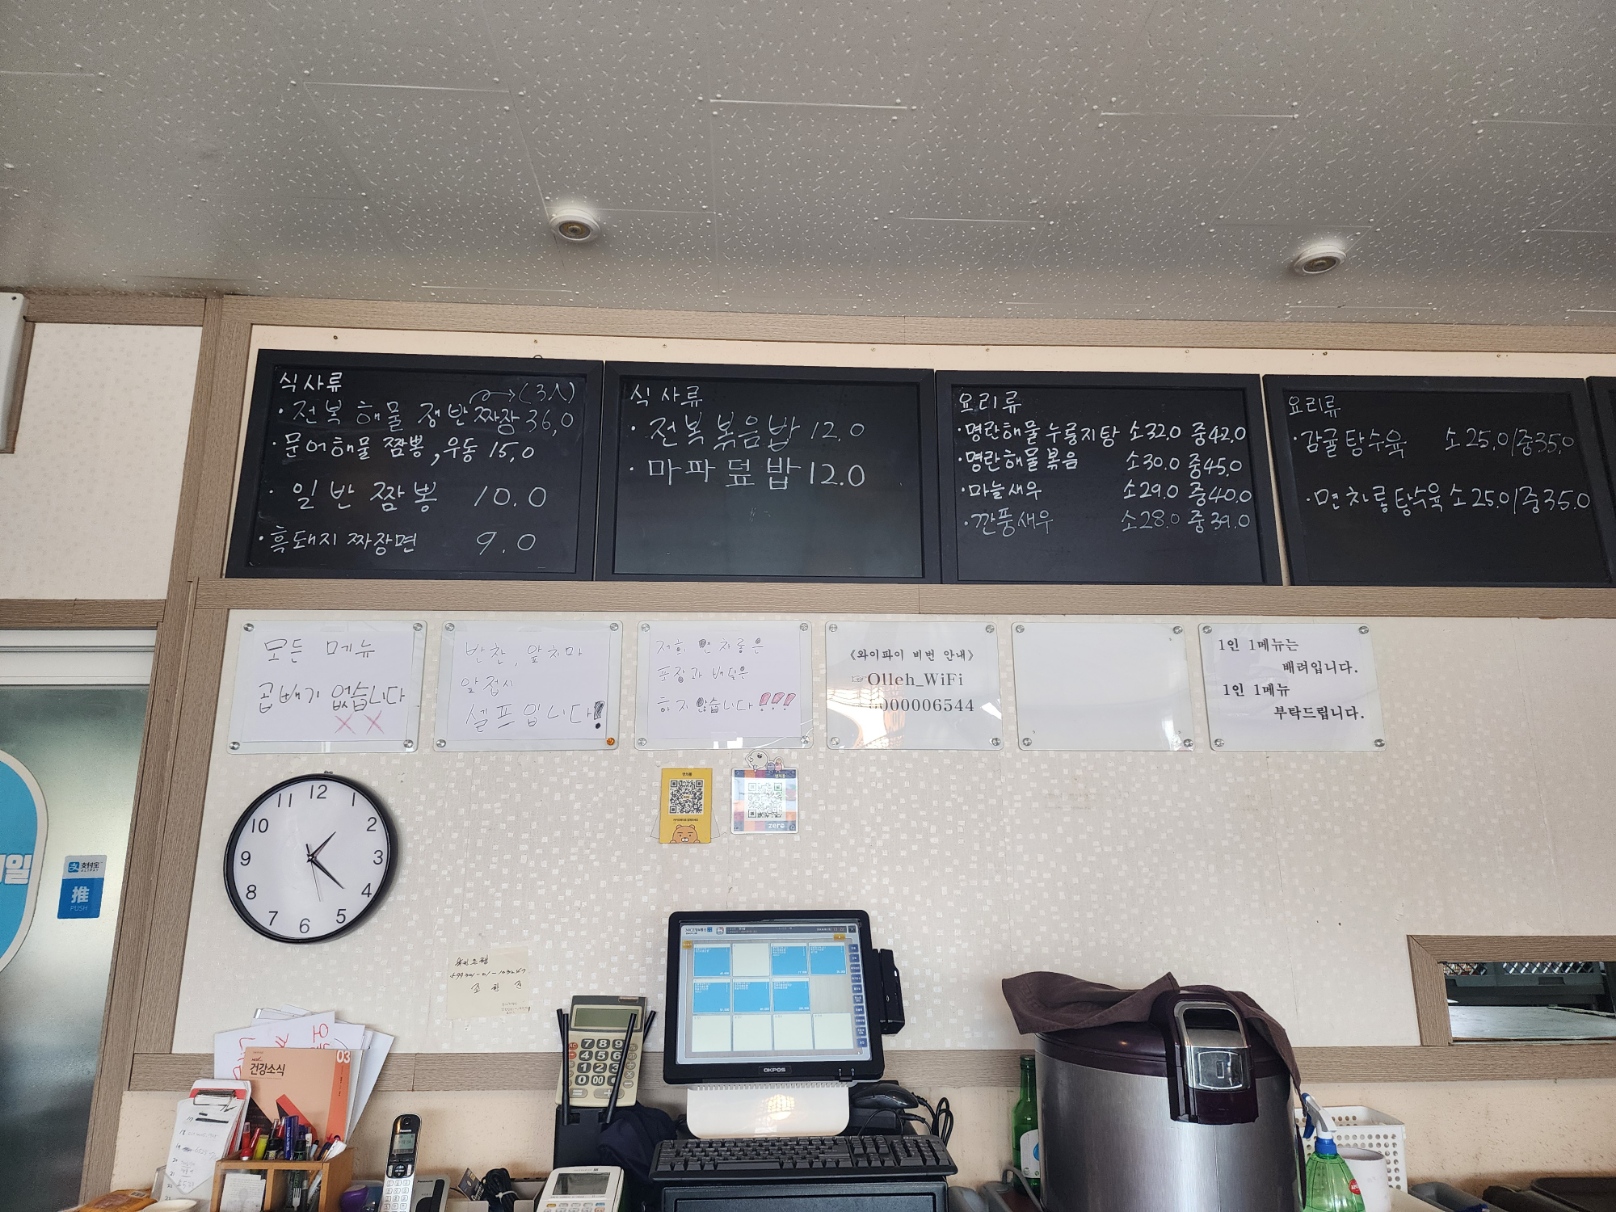 식사류
(3人)
·전복 해물 쟁반짜장 36,0
·문어해물 짬뽕,우동 15,0
·일반 짬뽕 10.0
·흑돼지 짜장면 9.0
식사류
·전복볶음밥 12.0
·마파덮밥 12.0
요리류
·명란해물누룽지탕 소32.0 중42.0
·명란해물볶음 소30.0 중45.0
·마늘새우 소29.0 중40.0
·깐풍새우 소28.0 중39.0
요리류
·감귤탕수육 소25.0/중35.0
·면차롱탕수육 소25.0/중35.0
모든 메뉴
곱빼기 없습니다
XX
반찬, 앞치마
앞접시
셀프입니다!
저희 면차롱은
포장과 배달은
하지 않습니다!!!
《와이파이 비번 안내》
☞Olleh_WiFi
000006544
1인 1메뉴는
배려입니다.
1인 1메뉴
부탁드립니다.
12
1
2
3
4
5
6
7
8
9
10
11
일
支付宝
推
PUSH
03
건강소식
zero
OKPOS
7 8 9
4 5 6
1 2 3
0 00